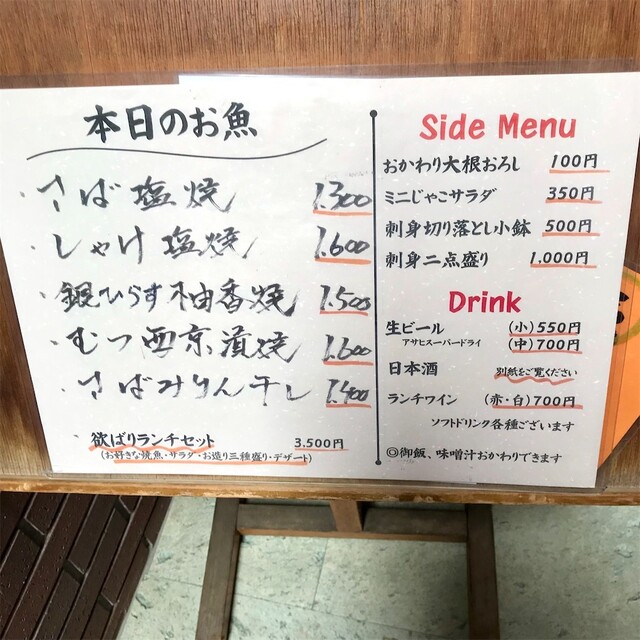 本日のお魚
・さば塩焼 1.300
・しゃけ塩焼 1.600
・銀ひらす柚香焼 1.500
・むつ西京漬焼 1.600
・さばみりん干し 1.400
・欲ばりランチセット 3.500円
(お好きな焼魚・サラダ・お造り三種盛り・デザート)
Side Menu
おかわり大根おろし 100円
ミニじゃこサラダ 350円
刺身切り落とし小鉢 500円
刺身二点盛り 1.000円
Drink
生ビール (小)550円
アサヒスーパードライ (中)700円
日本酒 別紙をご覧ください
ランチワイン (赤・白)700円
ソフトドリンク各種ございます
◎御飯、味噌汁おかわりできます